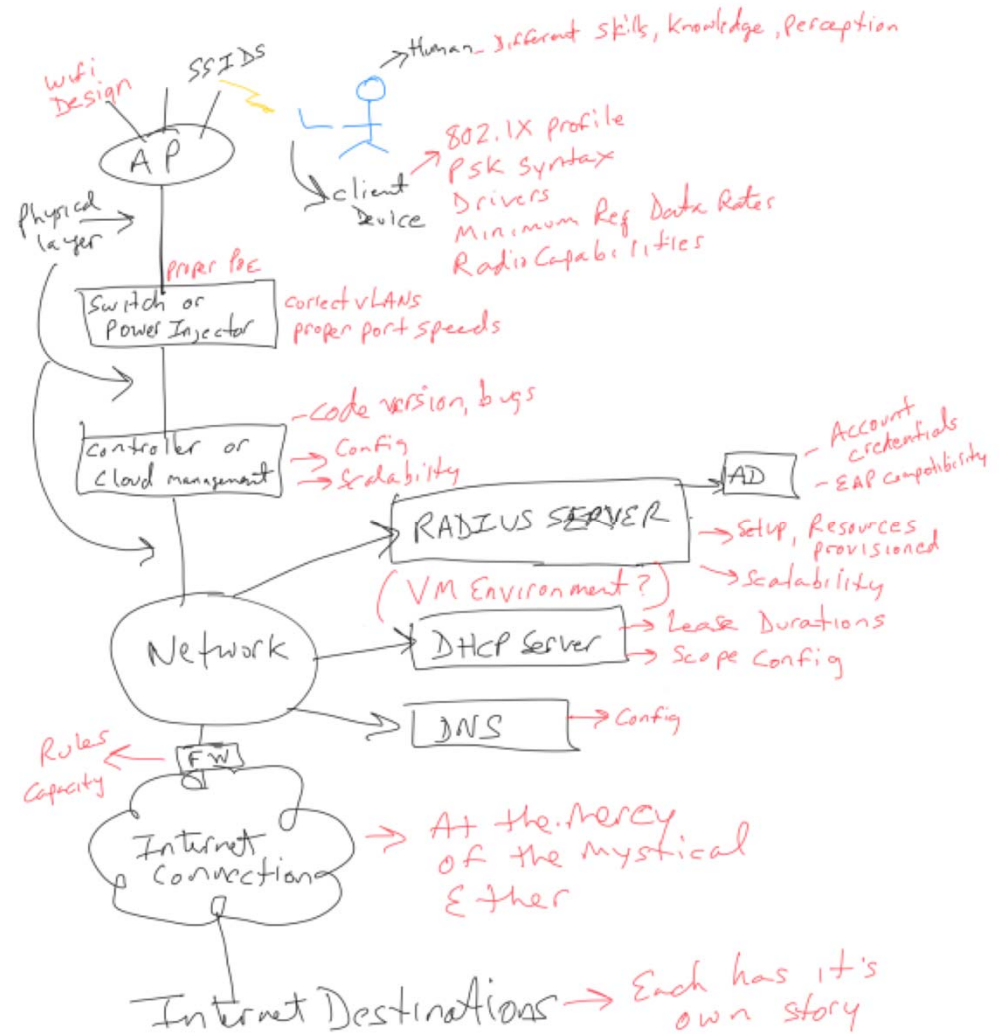 Human - Different Skills, Knowledge, Perception
SSIDS
wifi
Design
AP
802.1X profile
PSK Syntax
Drivers
Minimum Req Data Rates
Radio Capabilities
client
Device
Physical
layer
Proper PoE
Switch or
Power Injector
correct vLANs
proper port speeds
-Code version, bugs
Config
Scalability
controller or
Cloud management
AD
- Account
credentials
- EAP Compatibility
RADIUS SERVER
Setup, Resources
provisioned
Scalability
(VM Environment?)
Network
DHCP Server
Lease Durations
Scope Config
DNS
Config
FW
Rules
Capacity
Internet
Connection
At the mercy
of the mystical
Ether
Internet Destinations
Each has it's
own story